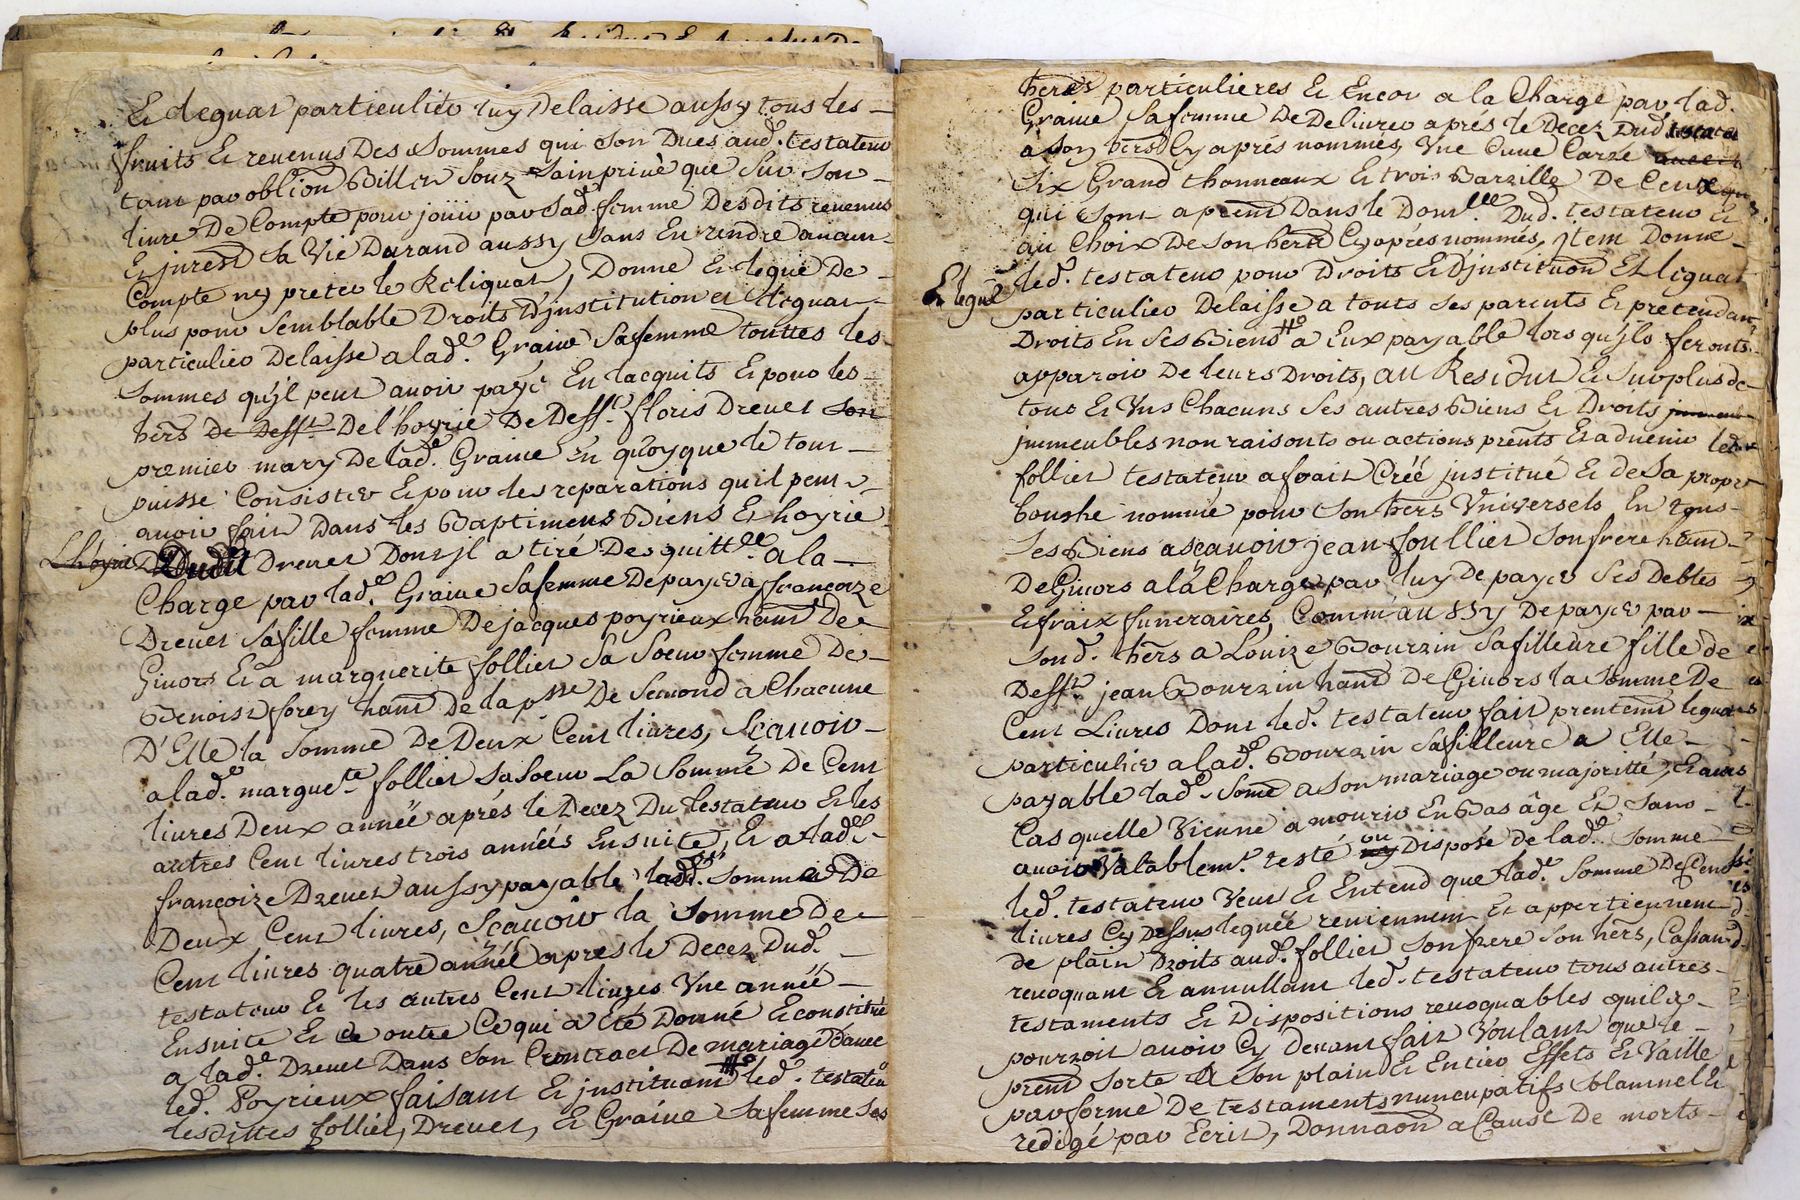 Et leguat particulier luy Delaisse aussy tous les
fruits Et revenus Des Sommes qui Son Dues aud. testateur
tant par oblion Billet Souz Sain privé que Sur Son
livre De Compte pour joüir par Sad. femme Desdits revenus
Et jurent Sa Vie Durand aussy Sans En rendre aucun
Compte ny preter le Reliquat, Donne Et legue De
plus pour Semblable Droits D'institution et leguat
particulier Delaisse a lad.e Graive Safemme touttes les
Sommes qu'jl peut avoir payé En lacquits Et pour les
hers De Deff.t De l'hoyrie De Deff.t floris Drevet son
premier mary De lad.e Graive En quoyque le tout
puisse Consister Et pour les reparations quil peut
avoir fait Dans les Baptimens Biens Et hoyrie
Lhoyrie Dudit Drevet Dont jl a tiré De quitt.ce a la
Charge par lad.e Graive Safemme De payer a françoize
Drevet Safille femme De jacques poyrieux hant De
Givors Et a marguerite follier Sa Soeur femme De
Benoist forey hant De la p.sse De Semond a Chacune
D'Elle la Somme De Deux Cent livres, Scavoir
a lad.e margue.te follier Sa Soeur La Somme De Cent
livres Deux année aprés le Decez Du testateur Et les
autres Cent livres trois années Ensuite, Et a lad.e
françoize Drevet aussy payable lad. Somme De
Deux Cent livres, Scavoir la Somme De
Cent livres quatre année apres le Decez Dud.
testateur Et les autres Cent livres Vne année
Ensuite Et Ce outre Ce qui a Eté Donné Et constitué
a lad.e Drevet Dans Son Contract De mariage D'avec
led. Poyrieux faisant Et jnstituant led. testateur
lesdittes follier, Drevet, Et Graive Safemme Ses
hers particulieres Et Encor a la Charge par lad.
Graive Safemme De Delivrer aprés le Decez Dud testateur
a Son hers Cy aprés nommés, Vne Cuve Carré
Six Grand thonneaux Et trois Barzille De Ceux
qui Sont a prent Dans le Dom.lle Dud. testateur Et
au Choix De Son hers Cy aprés nommés, jtem Donne
Et legue led. testateur pour Droits Et D'jnstituon Et leguat
particulier Delaisse a touts Ses parents Et pretendant
Droits En Ses Biens a Eux payable lors qu'jls feronts
apparoir De leurs Droits, au Residut Et Surplus de
tous Et Vns Chacuns Ses autres Biens Et Droits
jmmeubles non raisonts ou actions prents Et advenir led.
follier testateur a fait Créé jnstitué Et de Sa propre
bouche nommé pour Son hers Vniversels En tous
Ses Biens ascavoir jean foullier Son frere hant
De Givors a la Charge par luy De payer Ses Debtes
Et fraix funeraires, Comm'aussy De payer par
Sond. hers a Louize Bourzin Safilleure fille de
Deff.t jean Bourzin hant De Givors la Somme De
Cent Livres Dont led. testateur fait prentemt leguats
particulier a lad.e Bourzin Safilleure a Elle
payable lad.e Somme a Son mariage ou majoritté, Et au
Cas quelle Vienne a mourir En Bas âge Et Sans
avoir Valablem.t testé ou Disposé De lad.e Somme
led. testateur Veut Et Entend que lad.e Somme De Cent
livres Cy Dessus leguée reviennent Et appertiennent
de plain Droits aud. follier Son frere Son hers, Cassant
revoquant Et annullant led. testateur tous autres
testaments Et Dispositions revoquables quil
pourroit avoir Cy Devant fait Voulant que le
prent Sorte a Son plain Et Entier Effets Et Vaille
par forme De testaments nuncupatifs Solamnelle
redigé par Ecrit, Donnaon a Cause De morts